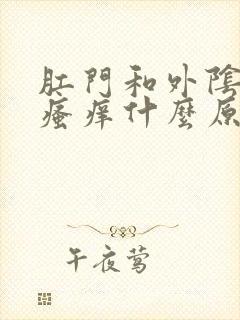 肛門和外陰
瘙痒什麼原
午夜莺